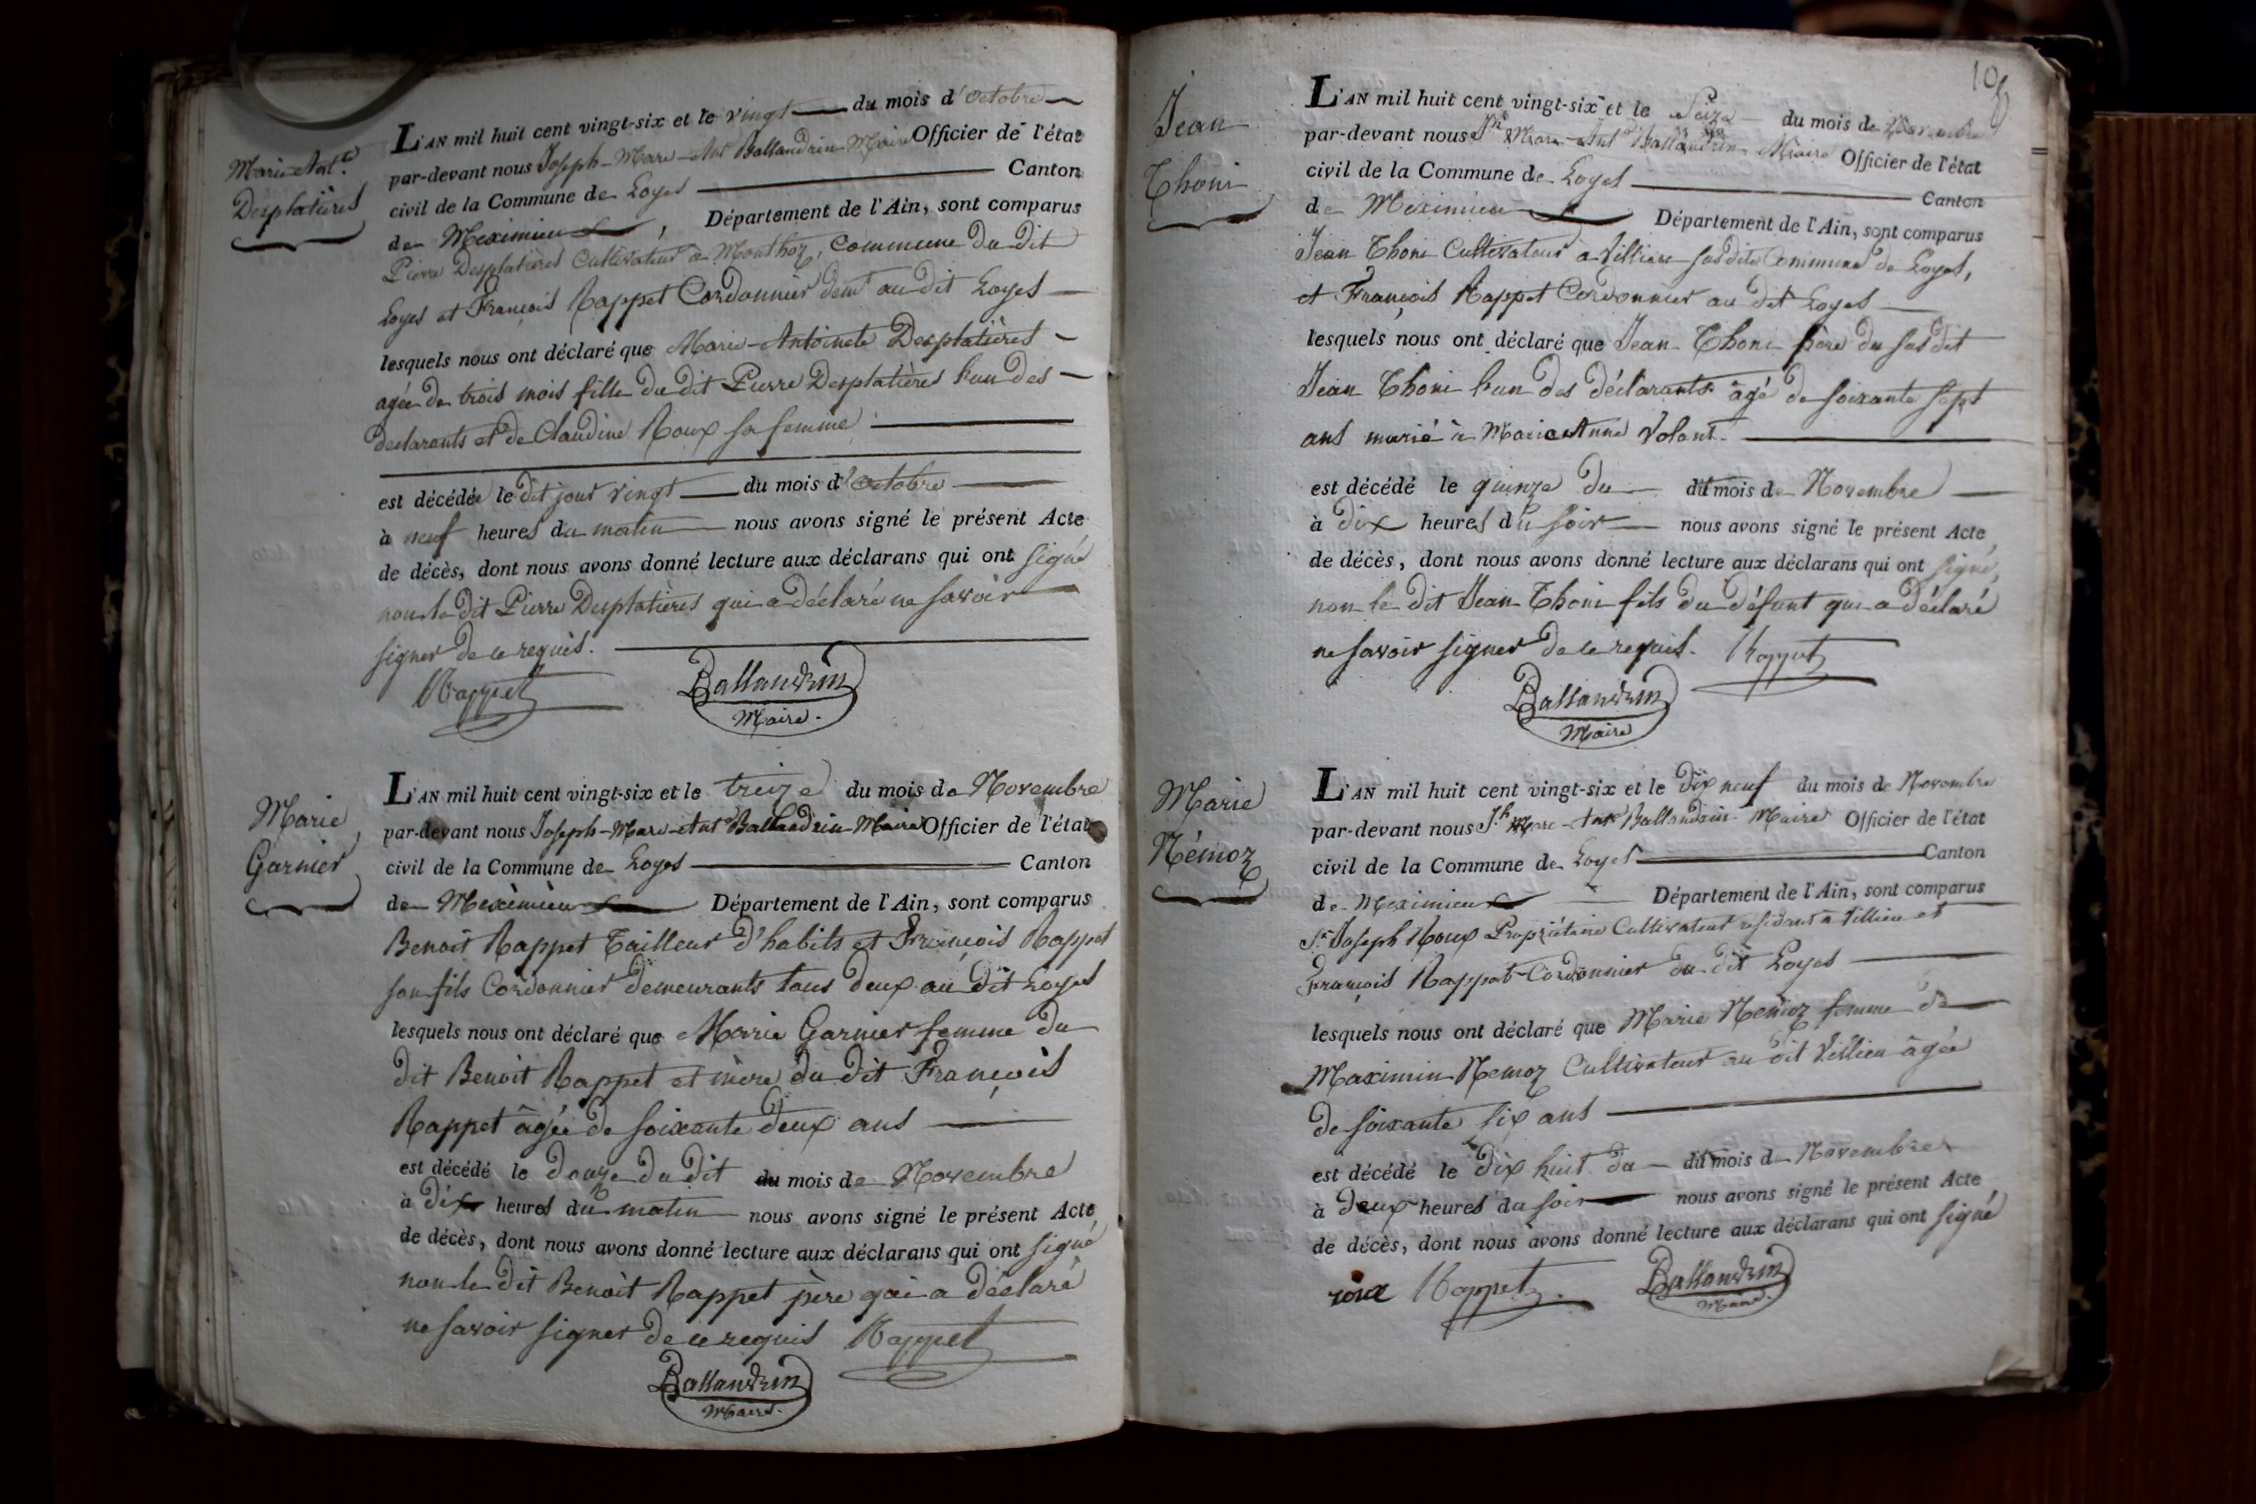 Marie Ant.te
Desplatières
L'AN mil huit cent vingt-six et le vingt du mois d'octobre
par-devant nous Joseph-Marc-Ant Ballandrin Maire Officier de l'état
civil de la Commune de Loyes Canton
de Meximieux, Département de l'Ain, sont comparus
Pierre Desplatières Cultivateur à Monthoz, Commune du dit
Loyes et François Rappet Cordonnier demt au dit Loyes
lesquels nous ont déclaré que Marie-Antoinete Desplatières
agée de trois mois fille du dit Pierre Desplatières l'un des
declarants et de Claudine Roux sa femme
est décédée le dit jour vingt du mois d'octobre
à neuf heures du matin nous avons signé le présent Acte
de décès, dont nous avons donné lecture aux déclarans qui ont signé
non le dit Pierre Desplatières qui a déclaré ne savoir
signer de ce requis.
Rappet Ballandrin
Maire.
Marie
Garnier
L'AN mil huit cent vingt-six et le treize du mois de Novembre
par-devant nous Joseph-Marc-Ant Ballandrin Maire Officier de l'état
civil de la Commune de Loyes Canton
de Meximieux Département de l'Ain, sont comparus
Benoit Rappet Tailleur d'habits et François Rappet
son fils Cordonnier demeurants tous deux au dit Loyes
lesquels nous ont déclaré que Marie Garnier femme du
dit Benoit Rappet et mère du dit François
Rappet âgée de soixante deux ans
est décédé le douze du dit du mois de Novembre
à dix heures du matin nous avons signé le présent Acte
de décès, dont nous avons donné lecture aux déclarans qui ont signé
non le dit Benoit Rappet père qui a déclaré
ne savoir signer de ce requis Rappet
Ballandrin
Maire.
Jean
Thoni
L'AN mil huit cent vingt-six et le Seize du mois de Novembre
par-devant nous Jh Marc-Ant Ballandrin Maire Officier de l'état
civil de la Commune de Loyes Canton
de Meximieux Département de l'Ain, sont comparus
Jean Thoni Cultivateur a Villieu susdite Commune de Loyes,
et François Rappet Cordonnier au dit Loyes
lesquels nous ont déclaré que Jean Thoni père du susdit
Jean Thoni l'un des déclarants âgé de soixante sept
ans marié à Marie Anne Volant.
est décédé le quinze du dit mois de Novembre
à dix heures du soir nous avons signé le présent Acte
de décès, dont nous avons donné lecture aux déclarans qui ont signé,
non le dit Jean Thoni fils du défunt qui a déclaré
ne savoir signer de ce requis. Rappet
Ballandrin
Maire
Marie
Némoz
L'AN mil huit cent vingt-six et le dix neuf du mois de Novembre
par-devant nous J.h Marc-Ant Ballandrin Maire Officier de l'état
civil de la Commune de Loyes Canton
de Meximieux Département de l'Ain, sont comparus
Sr Joseph Roux Propriétaire Cultivateur résidant à Villieu et
François Rappet Cordonnier du dit Loyes
lesquels nous ont déclaré que Marie Némoz femme de
Maximin Nemoz Cultivateur au dit Villieu âgée
de soixante six ans
est décédé le dix huit du dit mois de Novembre
à deux heures du soir nous avons signé le présent Acte
de décès, dont nous avons donné lecture aux déclarans qui ont signé
roux Rappet. Ballandrin
Maire.